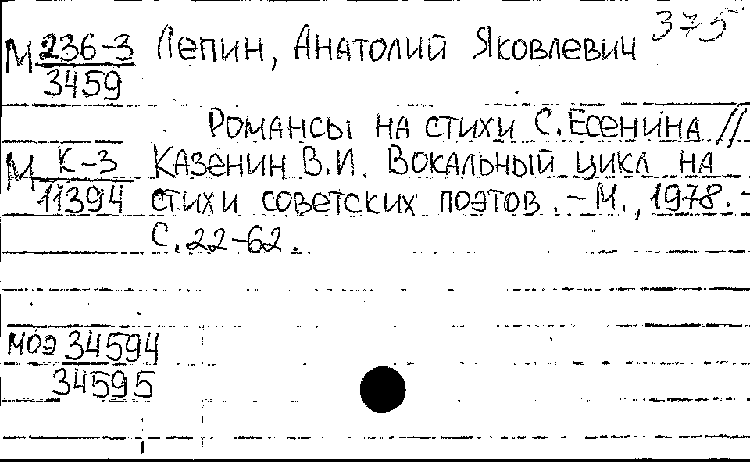 375
М 236-3 Лепин, Анатолий Яковлевич
3459
Романсы на стихи С. Есенина //
М К-3 Казенин В.И. Вокальный цикл на
11394 стихи советских поэтов. – М., 1978. –
С. 22-62.
МОЭ 34594
34595